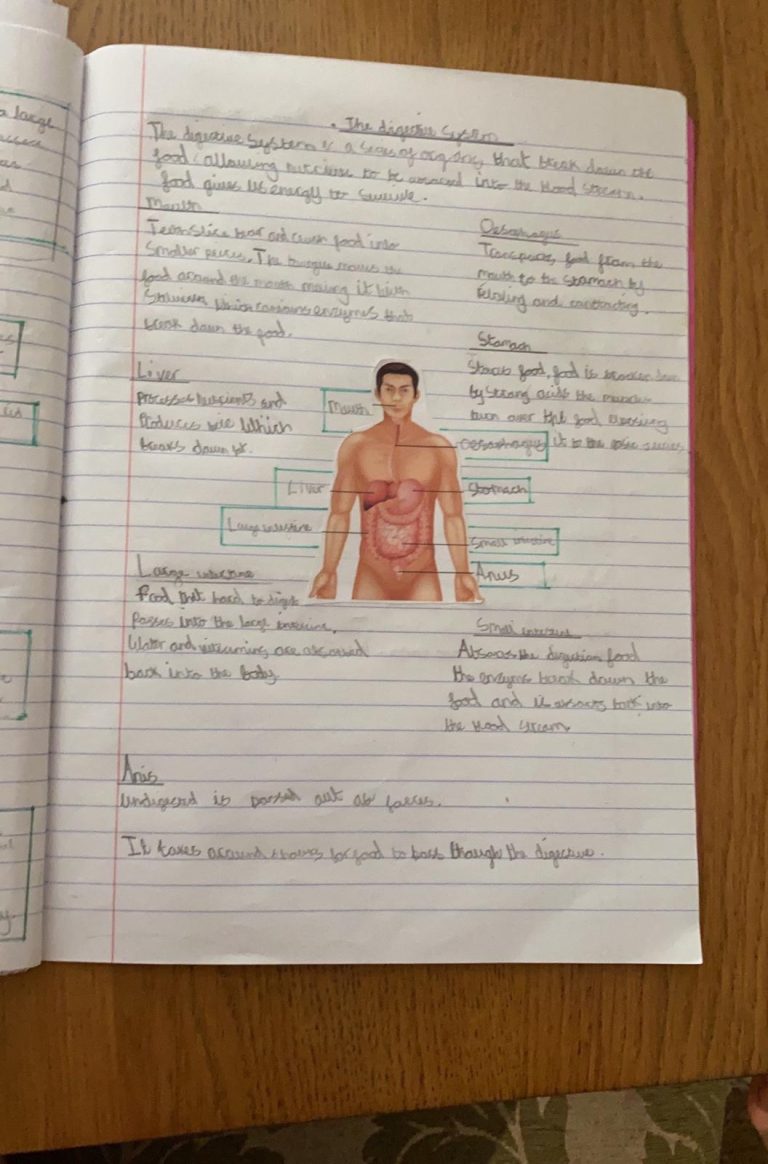 The digestive System
The digestive System is a series of organs, that break down the
food, allowing nutrients to be absorbed into the blood stream.
food gives us energy to survive.
Mouth
Teeth slice tear and crush food into
Smaller pieces. The tongue moves the
food around the mouth mixing it with
Saliva which contains enzymes that
break down the food.
Oesophagus
Transports food from the
mouth to the stomach by
and contracting.
Stomach
Stores food, food is broken down
by strong acids the muscles
turn over the food
it to the
Liver
Processes nutrients and
Produces bile Which
breaks down
Mouth
Oesophagus
Liver
Stomach
Large intestine
Small intestine
Anus
Large intestine
food that hard to digest
Passes into the large intestine.
Water and vitamins are absorbed
back into the body
Small intestine
Absorbs the digestion food
the enzymes break down the
food and it absorbs back into
the blood stream
Anus
undigested is passed out as faeces.
It takes around for food to pass through the digestive.
a large